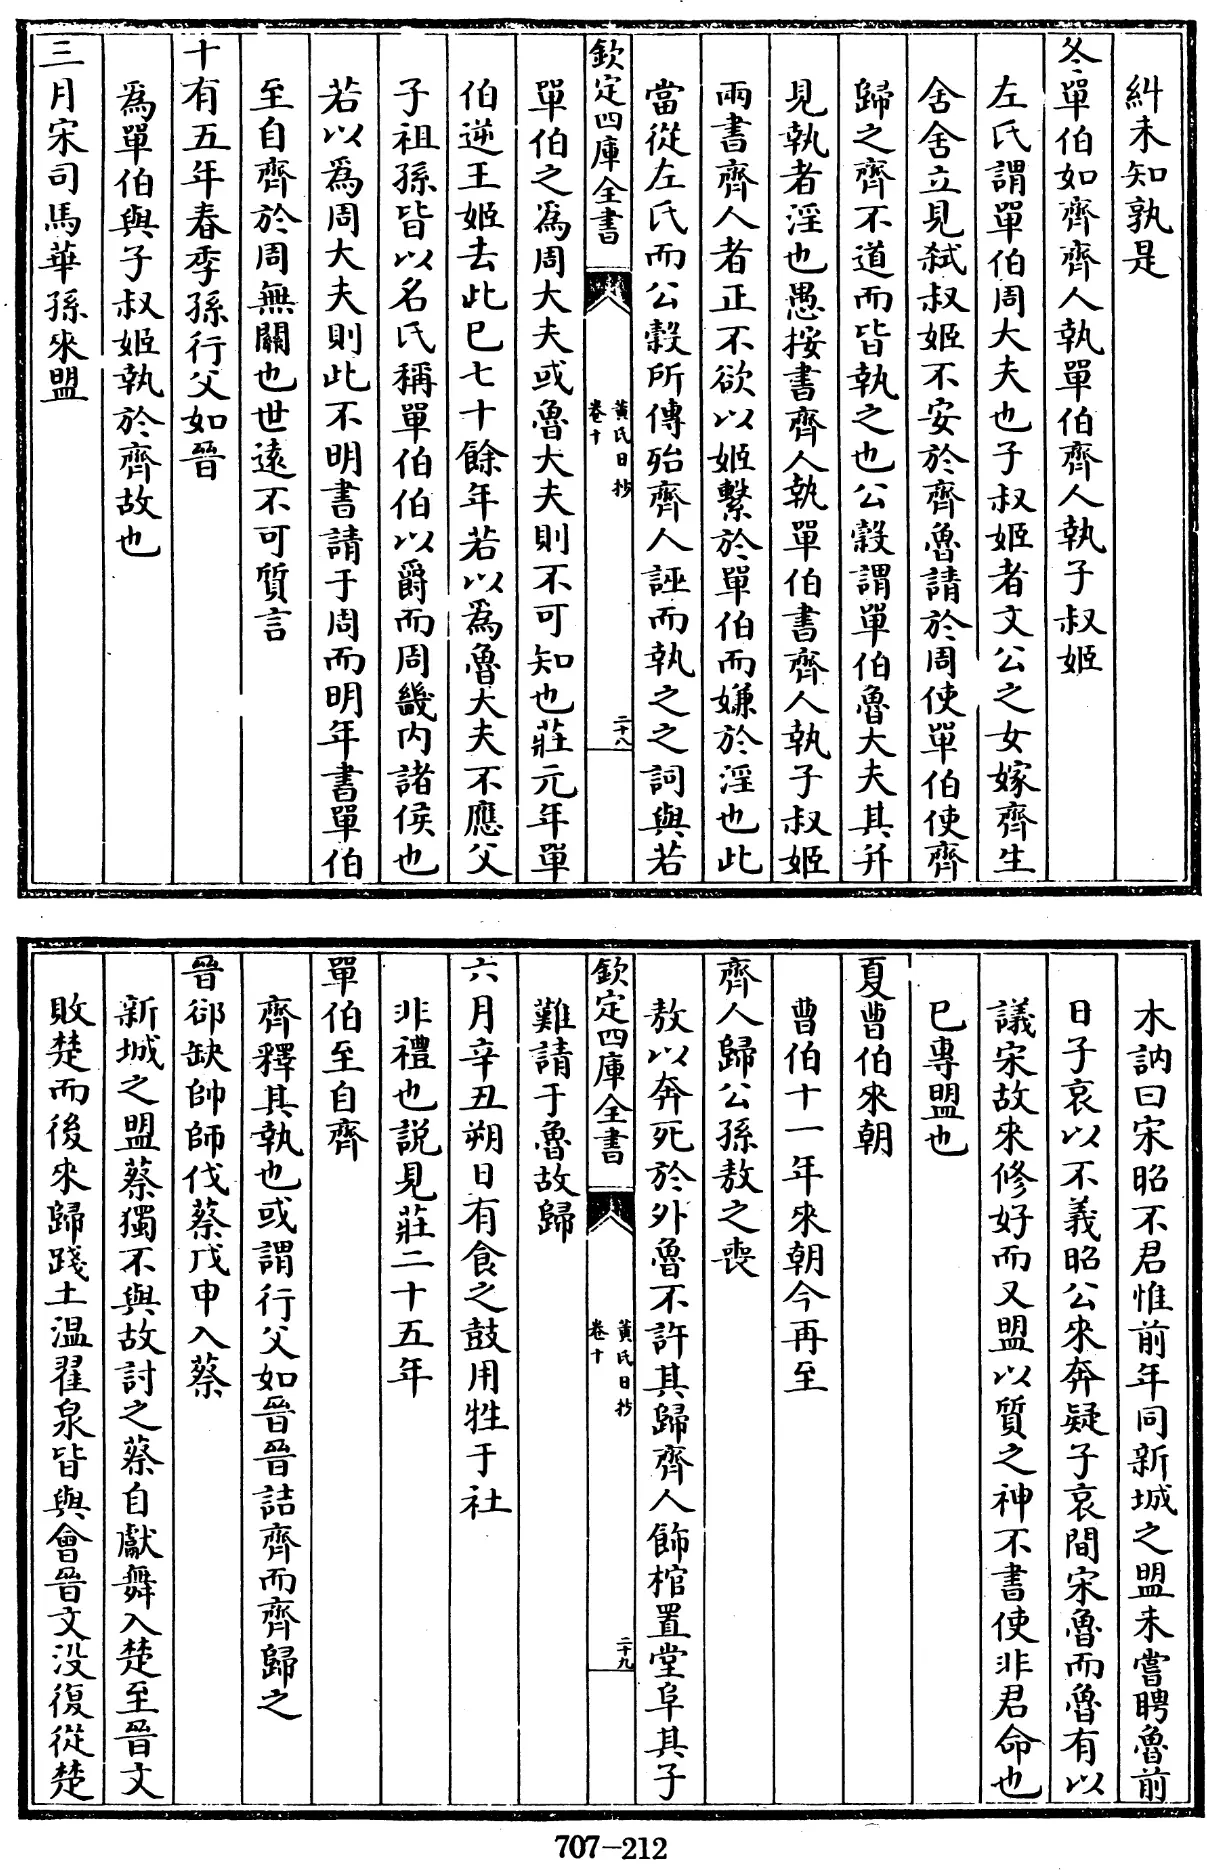 糾未知孰是
冬單伯如齊齊人執單伯齊人執子叔姬
左氏謂單伯周大夫也子叔姬者文公之女嫁齊生
舍舍立見弑叔姬不安於齊魯請於周使單伯使齊
歸之齊不道而皆執之也公穀謂單伯魯大夫其并
見執者淫也愚按書齊人執單伯書齊人執子叔姬
兩書齊人者正不欲以姬繫於單伯而嫌於淫也此
當從左氏而公穀所傳殆齊人誣而執之之詞與若
欽定四庫全書
黃氏日抄
卷十
二十八
單伯之為周大夫或魯大夫則不可知也莊元年單
伯逆王姬去此已七十餘年若以為魯大夫不應父
子祖孫皆以名氏稱單伯伯以爵而周畿內諸侯也
若以為周大夫則此不明書請于周而明年書單伯
至自齊於周無關也世遠不可質言
十有五年春季孫行父如晉
為單伯與子叔姬執於齊故也
三月宋司馬華孫來盟
木訥曰宋昭不君惟前年同新城之盟未嘗聘魯前
日子哀以不義昭公來奔疑子哀間宋魯而魯有以
議宋故來修好而又盟以質之神不書使非君命也
已專盟也
夏曹伯來朝
曹伯十一年來朝今再至
齊人歸公孫敖之喪
敖以奔死於外魯不許其歸齊人飾棺置堂阜其子
欽定四庫全書
黃氏日抄
卷十
二十九
難請于魯故歸
六月辛丑朔日有食之鼓用牲于社
非禮也說見莊二十五年
單伯至自齊
齊釋其執也或謂行父如晉晉詰齊而齊歸之
晉郤缺帥師伐蔡戊申入蔡
新城之盟蔡獨不與故討之蔡自獻舞入楚至晉文
敗楚而後來歸踐土温翟泉皆與會晉文没復從楚
707-212